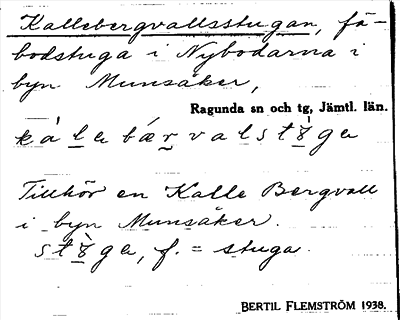 Kallebergvallsstugan, fä-
bodstuga i Nybodarna i
byn Munsåker,
Ragunda sn och tg, Jämtl. län.
Tillhör en Kalle Bergvall
i byn Munsåker.
f. = stuga.
BERTIL FLEMSTRÖM 1938.